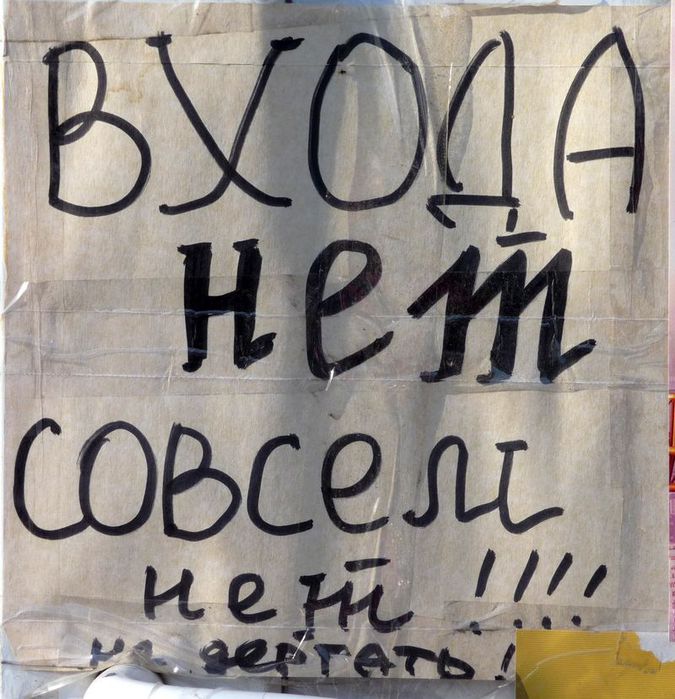 ВХОДА
нет
СОВСЕМ
нет !!!!
не дергать!